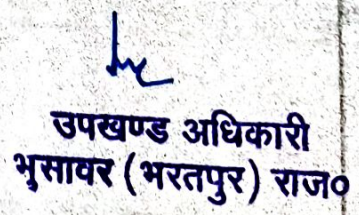 उपखण्ड अधिकारी
भुसावर (भरतपुर) राज०